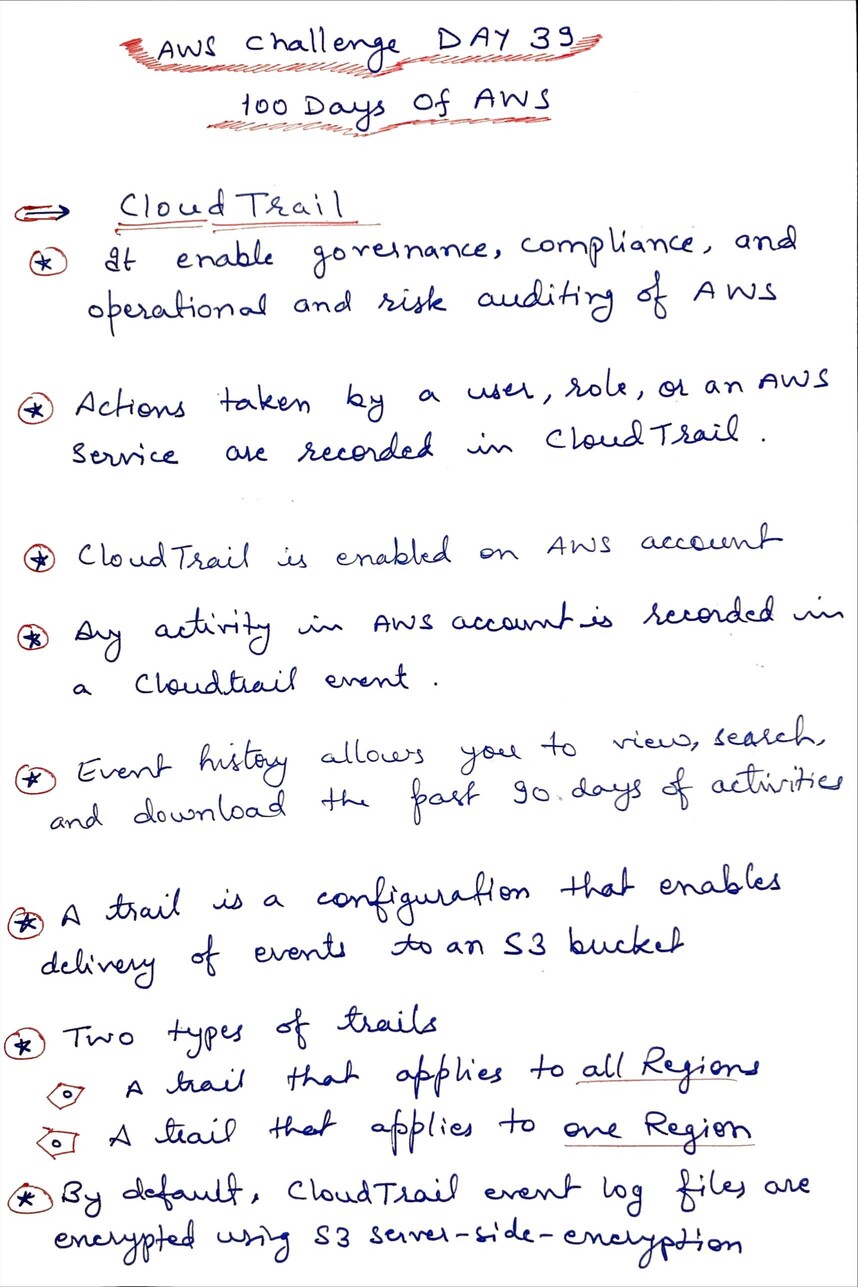 AWS Challenge DAY 39
100 Days Of AWS
CloudTrail
It enable governance, compliance, and
operational and risk auditing of AWS
Actions taken by a user, role, or an AWS
Service are recorded in CloudTrail.
CloudTrail is enabled on AWS account
Any activity in AWS account is recorded in
a Cloudtrail event.
Event history allows you to view, search,
and download the past 90 days of activities
A trail is a configuration that enables
delivery of events to an S3 bucket
Two types of trails
A trail that applies to all Regions
A trail that applies to one Region
By default, CloudTrail event log files are
encrypted using S3 server-side-encryption